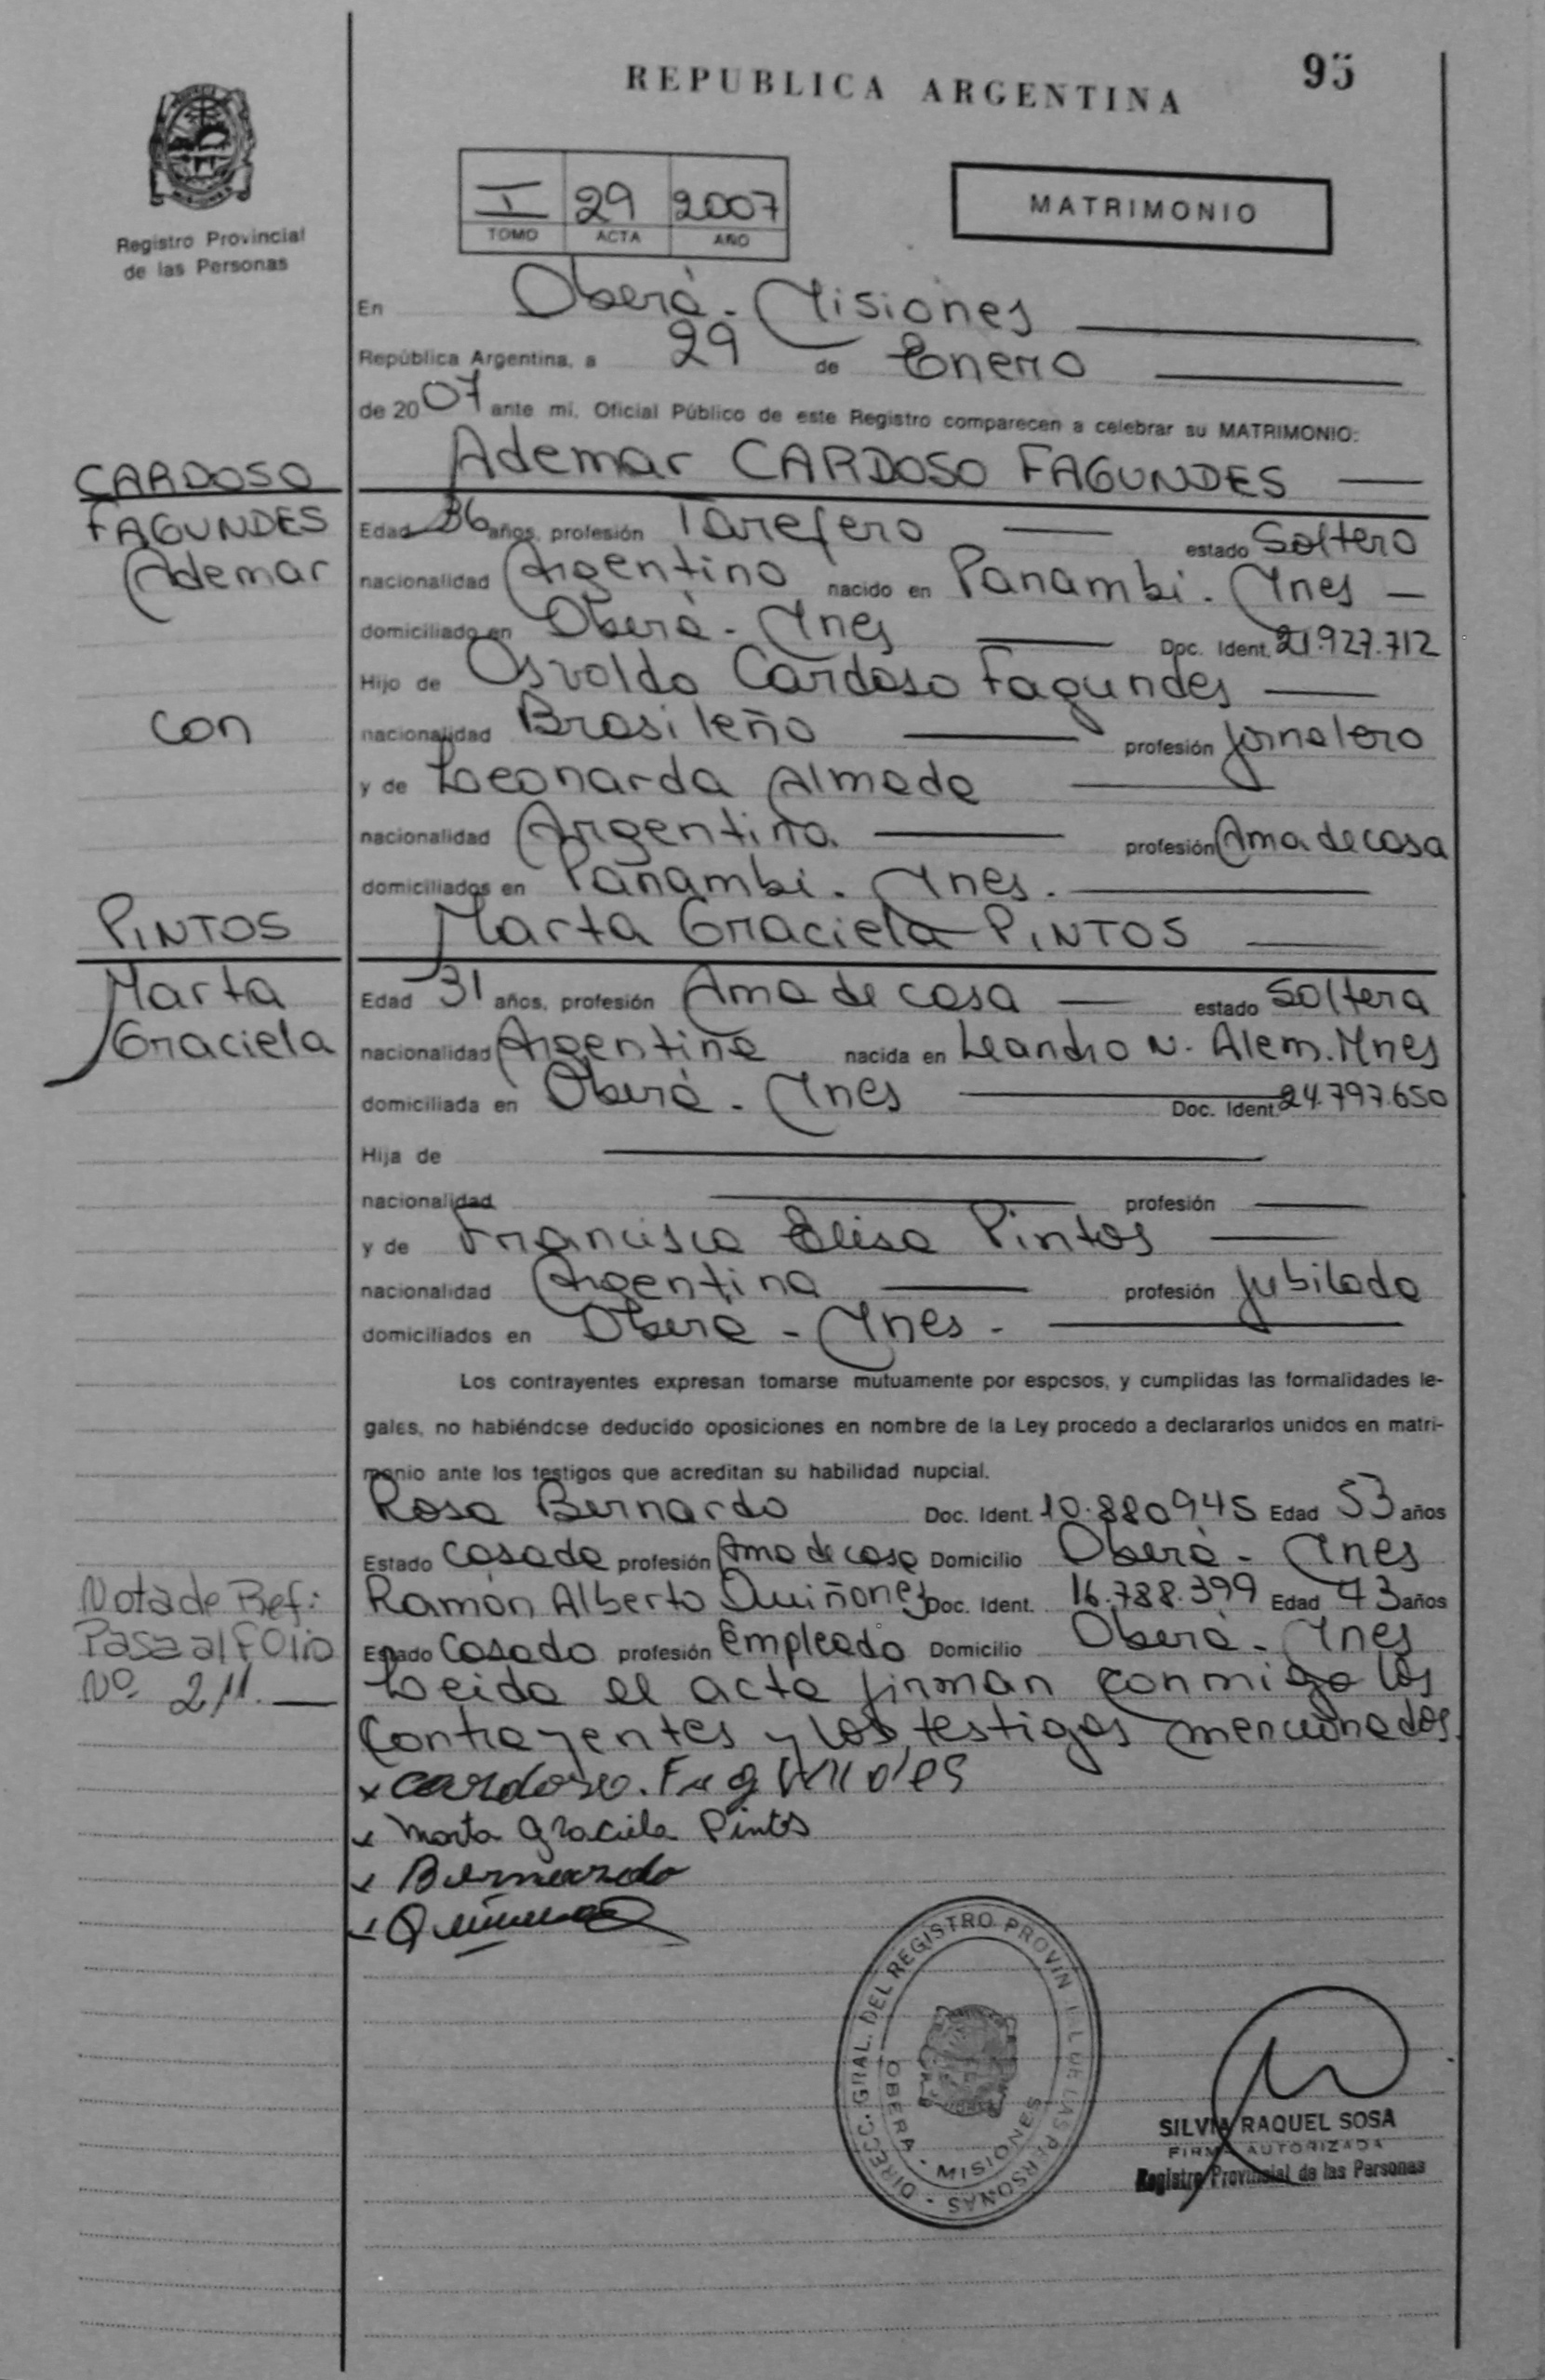 REPUBLICA ARGENTINA
95
Registro Provincial
de las Personas
I 29 2007
TOMO ACTA AÑO
MATRIMONIO
En Oberá - Misiones
República Argentina, a 29 de Enero
de 2007 ante mí, Oficial Público de este Registro comparecen a celebrar su MATRIMONIO:
Ademar CARDOSO FAGUNDES
CARDOSO
FAGUNDES
Ademar
Edad 36 años, profesión Tarefero estado Soltero
nacionalidad Argentino nacido en Panambi. Mnes
domiciliado en Oberá - Mnes Doc. Ident. 21.927.712
Hijo de Osvaldo Cardoso Fagundes
con
nacionalidad Brasileño profesión Jornalero
y de Leonarda Almada
nacionalidad Argentina profesión Ama de casa
domiciliados en Panambi. Mnes.
PINTOS
Marta
Graciela
Marta Graciela PINTOS
Edad 31 años, profesión Ama de casa estado Soltera
nacionalidad Argentina nacida en Leandro N. Alem. Mnes
domiciliada en Oberá - Mnes Doc. Ident. 24.797.650
Hija de
nacionalidad profesión
y de Francisca Elisa Pintos
nacionalidad Argentina profesión Jubilada
domiciliados en Oberá - Mnes -
Los contrayentes expresan tomarse mutuamente por esposos, y cumplidas las formalidades le-
gales, no habiéndose deducido oposiciones en nombre de la Ley procedo a declararlos unidos en matri-
monio ante los testigos que acreditan su habilidad nupcial.
Rosa Bernardo Doc. Ident. 10.880945 Edad 53 años
Estado Casada profesión Ama de casa Domicilio Oberá - Mnes
Ramón Alberto Quiñonez Doc. Ident. 16.788.399 Edad 43 años
Estado Casado profesión Empleado Domicilio Oberá - Mnes
Nota de Ref:
Pasa al Folio
Nº 211.
Leida el acta firman conmigo los
contrayentes y los testigos mencionados.
x Cardoso. Fagundes
x Marta Graciela Pintos
x Bernardo
x
DIRECC. GRAL. DEL REGISTRO PROVINCIAL DE LAS PERSONAS
OBERA - MISIONES
SILVIA RAQUEL SOSA
FIRMA AUTORIZADA
Registro Provincial de las Personas